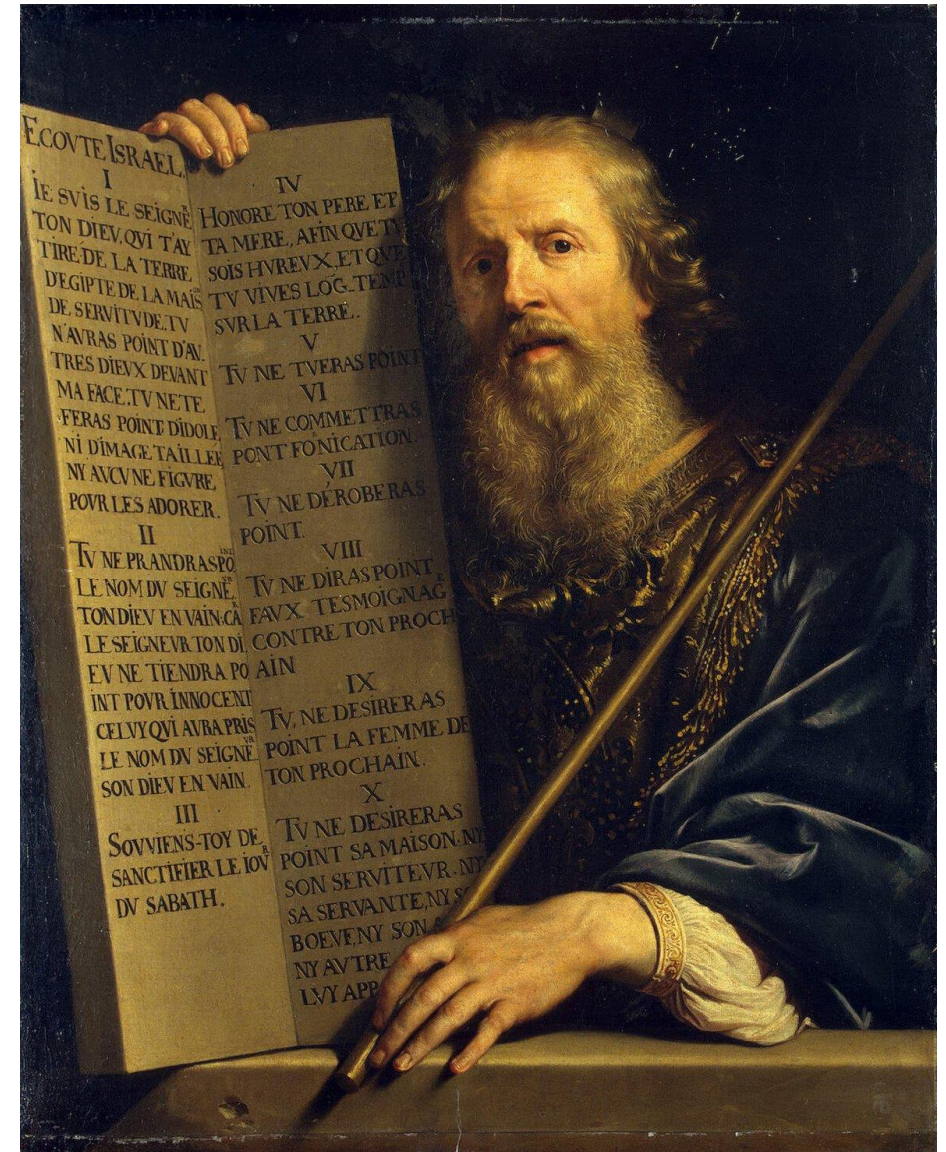 ECOVTE ISRAEL.
I
IE SVIS LE SEIGNE^R
TON DIEV. QVI T'AY
TIRE DE LA TERRE
DEGIPTE DE LA MAIS^ON
DE SERVITVDE. TV
N'AVRAS POINT D'AV.
TRES DIEVX DEVANT
MA FACE. TV NE TE
FERAS POINT D'IDOLE
NI DIMAGE TAILLEE
NY AVCVNE FIGVRE
POVR LES ADORER.
II
TV NE PRANDRAS PO^INT
LE NOM DV SEIGNE^VR
TON DIEV EN VAIN: CA^R
LE SEIGNEVR TON DI
EV NE TIENDRA PO
INT POVR INNOCENT
CELVY QVI AVRA PRIS
LE NOM DV SEIGNE^VR
SON DIEV EN VAIN.
III
SOVVIENS-TOY DE
SANCTIFIER LE IOV^R
DV SABATH.
IV
HONORE TON PERE ET
TA MERE, AFIN QVE TV
SOIS HVREVX, ET QVE
TV VIVES LÕG. TEMP
SVR LA TERRE.
V
TV NE TVERAS POINT
VI
TV NE COMMETTRAS
PONT FONICATION.
VII
TV NE DÉROBERAS
POINT.
VIII
TV NE DIRAS POINT
FAVX TESMOIGNAG^E
CONTRE TON PROCH
AIN
IX
TV, NE DESIRERAS
POINT LA FEMME DE
TON PROCHAIN.
X
TV NE DESIRERAS
POINT SA MAISON. NY
SON SERVITEVR. NY
SA SERVANTE, NY S
BOEVF, NY SON
NY AVTRE
LVY APP